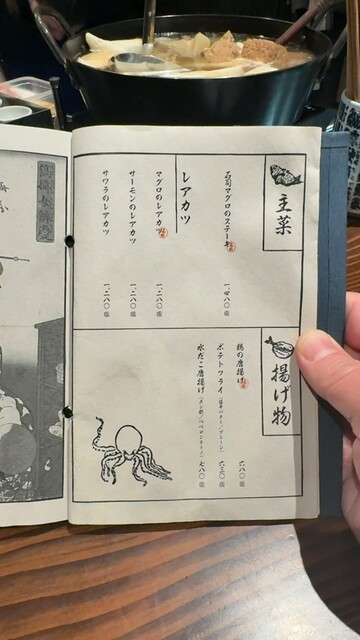 主菜
石司マグロのステーキ 一、四八〇
レアカツ
マグロのレアカツ 一、二八〇
サーモンのレアカツ 一、二八〇
サワラのレアカツ 一、二八〇
揚げ物
鶏の唐揚げ 六八〇
ポテトフライ 六三〇
水だこ唐揚げ 七八〇